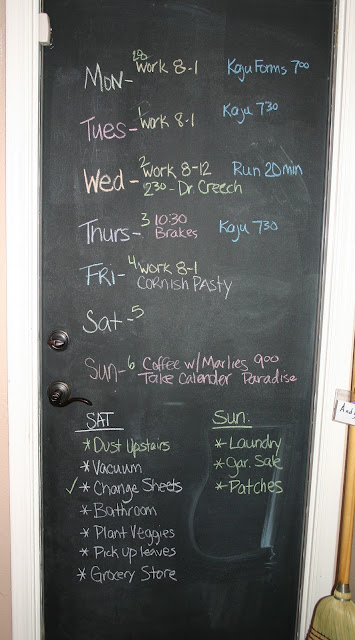 Mon- 28 Work 8-1 Kaju Forms 7:00
Tues- 1 Work 8-1 Kaju 730
Wed- 2 Work 8-12 Run 20min
230 - Dr Creech
Thurs- 3 10:30 Kaju 730
Brakes
Fri- 4 Work 8-1
Cornish Pasty
Sat- 5
Sun- 6 Coffee w/Marlies 900
Take Calender Paradise
SAT
* Dust Upstairs
* Vacuum
✓ * Change Sheets
* Bathroom
* Plant Veggies
* Pick up leaves
* Grocery Store
Sun:
* Laundry
* Gar. Sale
* Patches